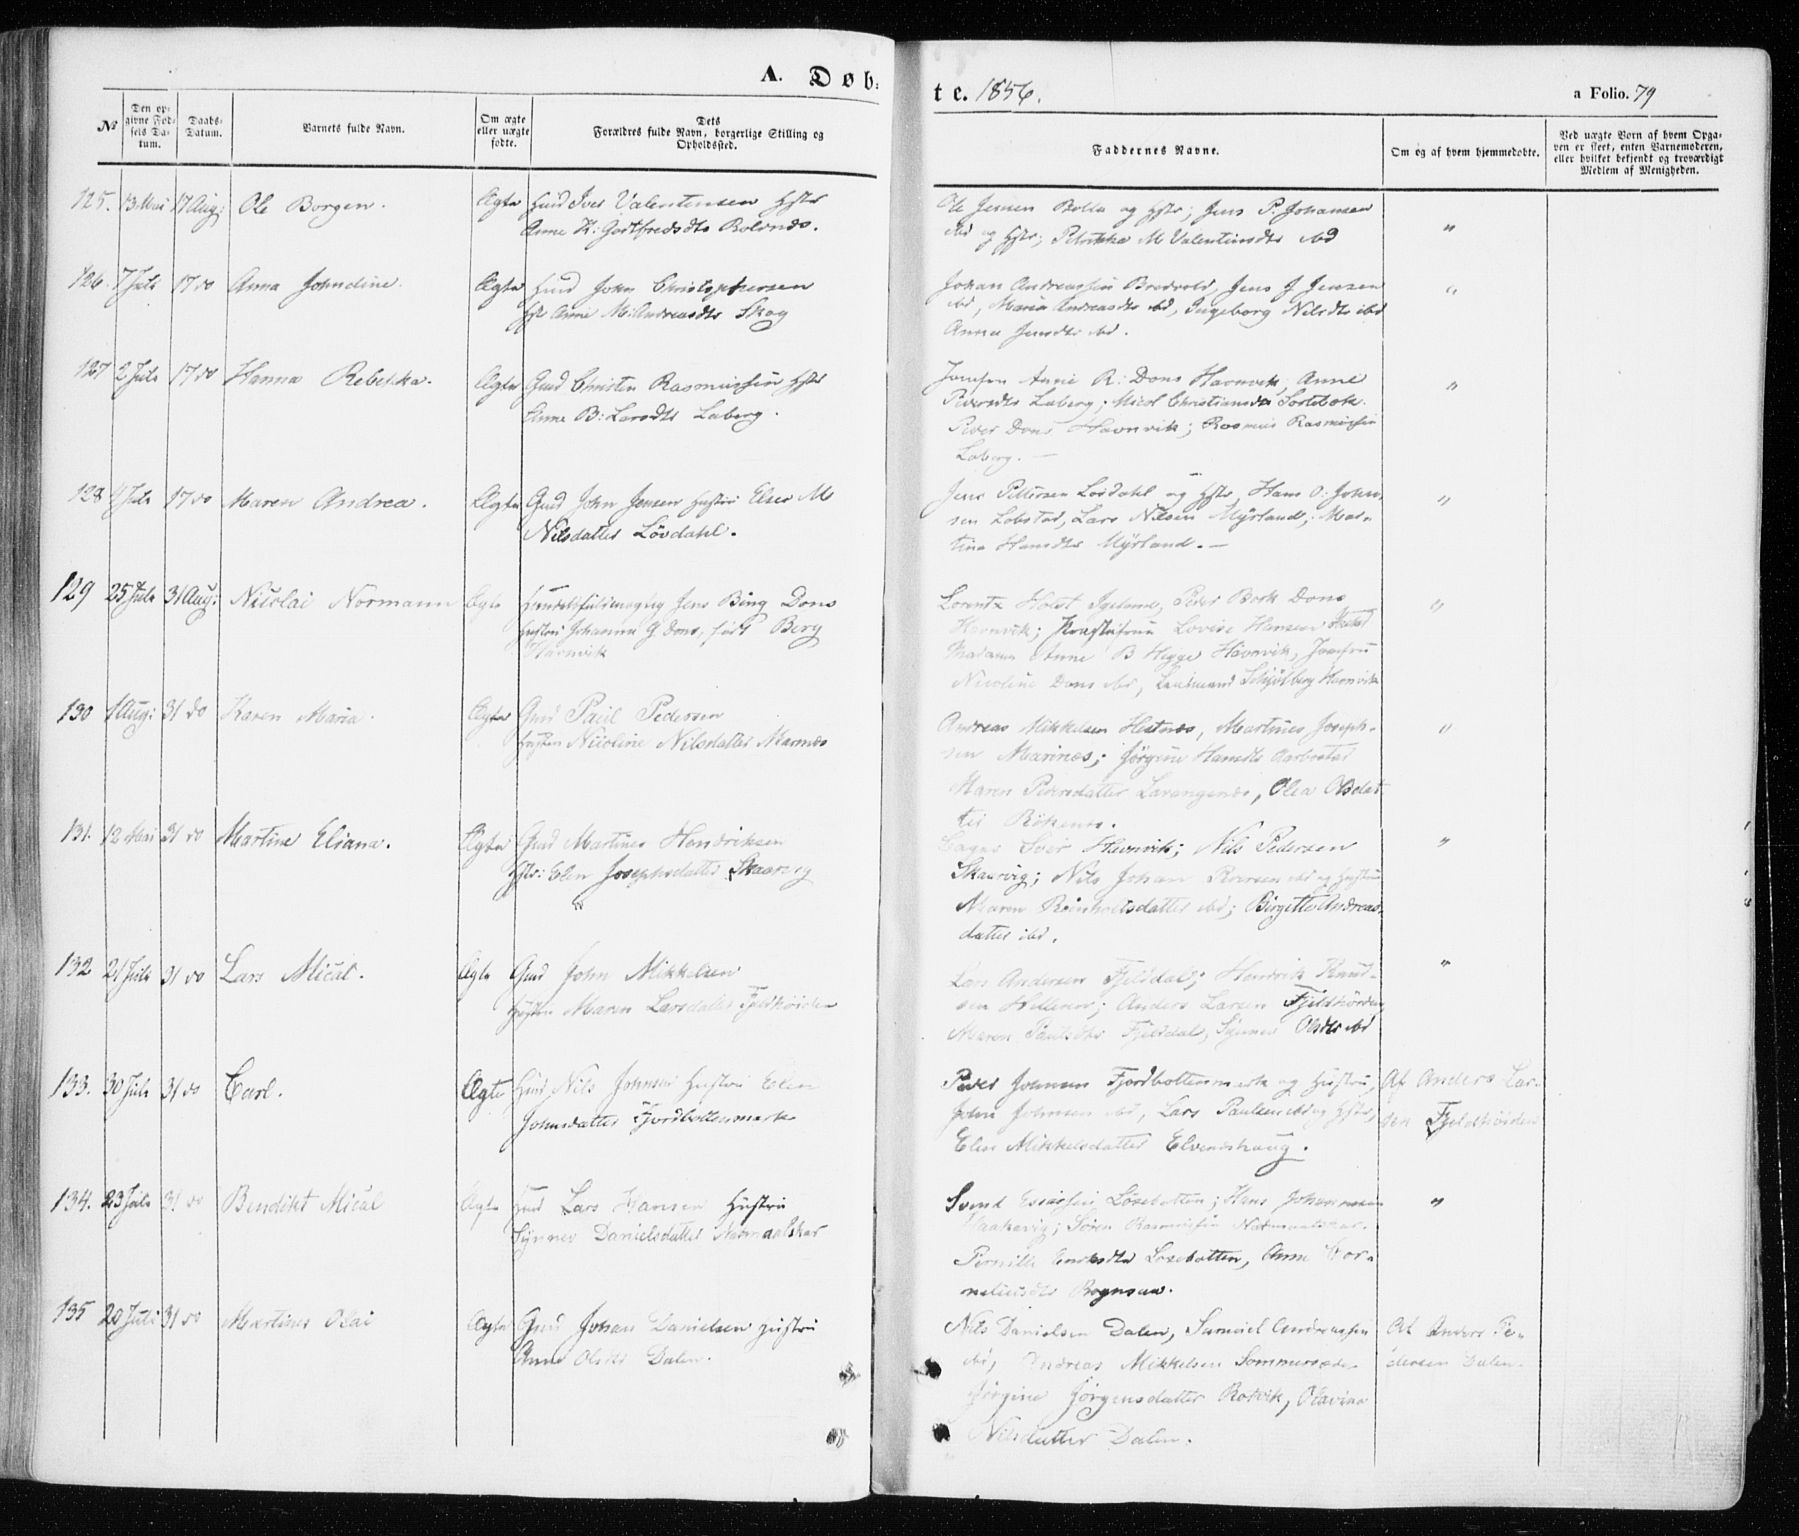 A. Døb-
te. 1856.
a Folio. 79
№
Den op-
givne Fød-
sels Da-
tum.
Daabs-
Datum.
Barnets fulde Navn.
Om ægte
eller uægte
fødte.
Dets
Forældres fulde Navn, borgerlige Stilling og
Opholdssted.
Faddernes Navne.
Om og af hvem hjemmedøbt.
Ved uægte Børn af hvem Opga-
ven er skeet, enten Barnemoderen,
eller hvilket bekjendt og troværdigt
Medlem af Menigheden.
125. 13 Mai 17 Aug: Ole Borgen. Ægte Hmd Iver Valentensen Hstr
Anne K: Gotfredsdtr Roldnæs.
Ole Jensen Bolla og Hstr; Jens P. Johansen
ibd og Hstr; Petrikka M Valentinsdtr ibd
"
126. 7 Juli 17 do Anna Johndine. Ægte Hmd John Christophersen
Hstr Anne M: Andreasdtr Skog
Johan Andreassen Bredvold, Jens J Jensen
ibd, Maria Andreasdtr ibd, Ingeborg Nilsdtr ibd
Anna Jensdtr ibd.
"
127 2 Juli 17 do Hanna Rebekka. Ægte Gmd Christen Rasmussen Hstr
Anne B: Larsdtr Laberg.
Jomfru Anne R: Dons Havnvik, Anne
Pedersdtr Laberg; Micol Christiansdtr Sortebak.
Peder Dons Havnvik; Rasmus Rasmussen
Laberg. —
"
128 4 Juli 17 do Maren Andrea. Ægte Gmd John Jensen Hustru Elser M
Nilsdatter Løvdahl.
Jens Pettersen Løvdahl og Hstr, Hans O: John-
sen Lobstad, Lars Nilsen Myrland, Mar-
tina Hansdtr Myrland. —
"
129 25 Juli 31 Aug: Nicolai Normann Ægte Handelsfuldmægtig Jens Bing Dons
Hustru Johanna G Dons, født Berg
Havnvik
Lorentz Holst, Peder Bork Dons
Havnvik; Lovise Hansen
Madame Anne B Hegge Havnvik, Jomfru
Nicoline Dons ibd, Schjølberg Havnvik
"
130 1 Aug: 31 do Karen Maria. Ægte Gmd Paul Pedersen
Hustru Nicoline Nilsdatter Marnæs
Andreas Mikkelsen Hestnæs, Martines Joseph-
sen Marinæs; Jørgine Hansdtr Aarbostad
Maren Pedersdatter Lavangenæs, Olea Olsdat-
ter Røkenes.
"
131. 12 Mai 31 do Martine Eliana. Ægte Gmd Martines Hendriksen
Hstr: Elen Josephsdatter Skaarvig
Havnvik; Nils Pedersen
Skaarvig; Nils Johan Pedersen ibd og Hustru
Maren Reinholtsdatter ibd; Birgitte Andreas-
datter ibd.
"
132 21 Juli 31 do Lars Mical. Ægte Gmd John Mikkelsen
Hustru Maren Larsdatter Fjeldhøiden
Lars Andersen Fjeldal; Hendrik Knud-
sen Hellener; Anders Larsen Fjeldhøiden,
Maren Paulsdtr Fjeldal, Synner Olsdtr ibd
"
133. 30 Juli 31 do Carl. Ægte Hmd Nils Johnsen Hustru Elen
Johnsdatter Fjordbottenmark
Peder Johnsen Fjordbottenmark og Hustru,
John Johnsen ibd, Lars Paulsen ibd og Hstr,
Elen Mikkelsdatter Elvenshaug.
Af Anders Lar-
sen Fjeldhøiden
134. 23 Juli 31 do Bendikt Mical Ægte Hmd Lars Hansen Hustru
Synner Danielsdatter Nesmaalskar
Svend Essaissen Løsebotten; Hans Johannesen
Haakavig; Søren Rasmussen
Pernille Løsebotten, Anne Cor-
neliusdtr Rognsaa.
"
135 20 Juli 31 do Martines Olai Ægte Gmd Johan Danielsen Hustru
Anne Olsdtr Dalen.
Nils Danielsen Dalen, Samuel Andreassen
ibd, Andreas Mikkelsen Sommersæde
Jørgine Jørgensdatter Rotvik, Olavina
Nilsdatter Dalen.
Af Anders Pe-
dersen Dalen.